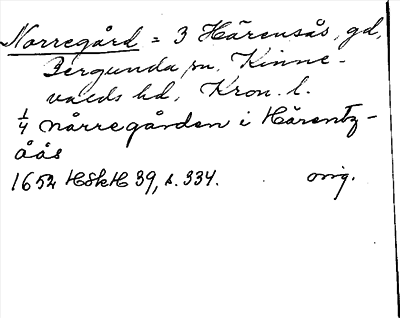 Norregård = 3 Härensås, gd,
Bergunda sn, Kinne-
valds hd, Kron. l.
1/4 nårregården i Härentz-
åås
1652 HSkH 39, s. 334. orig.